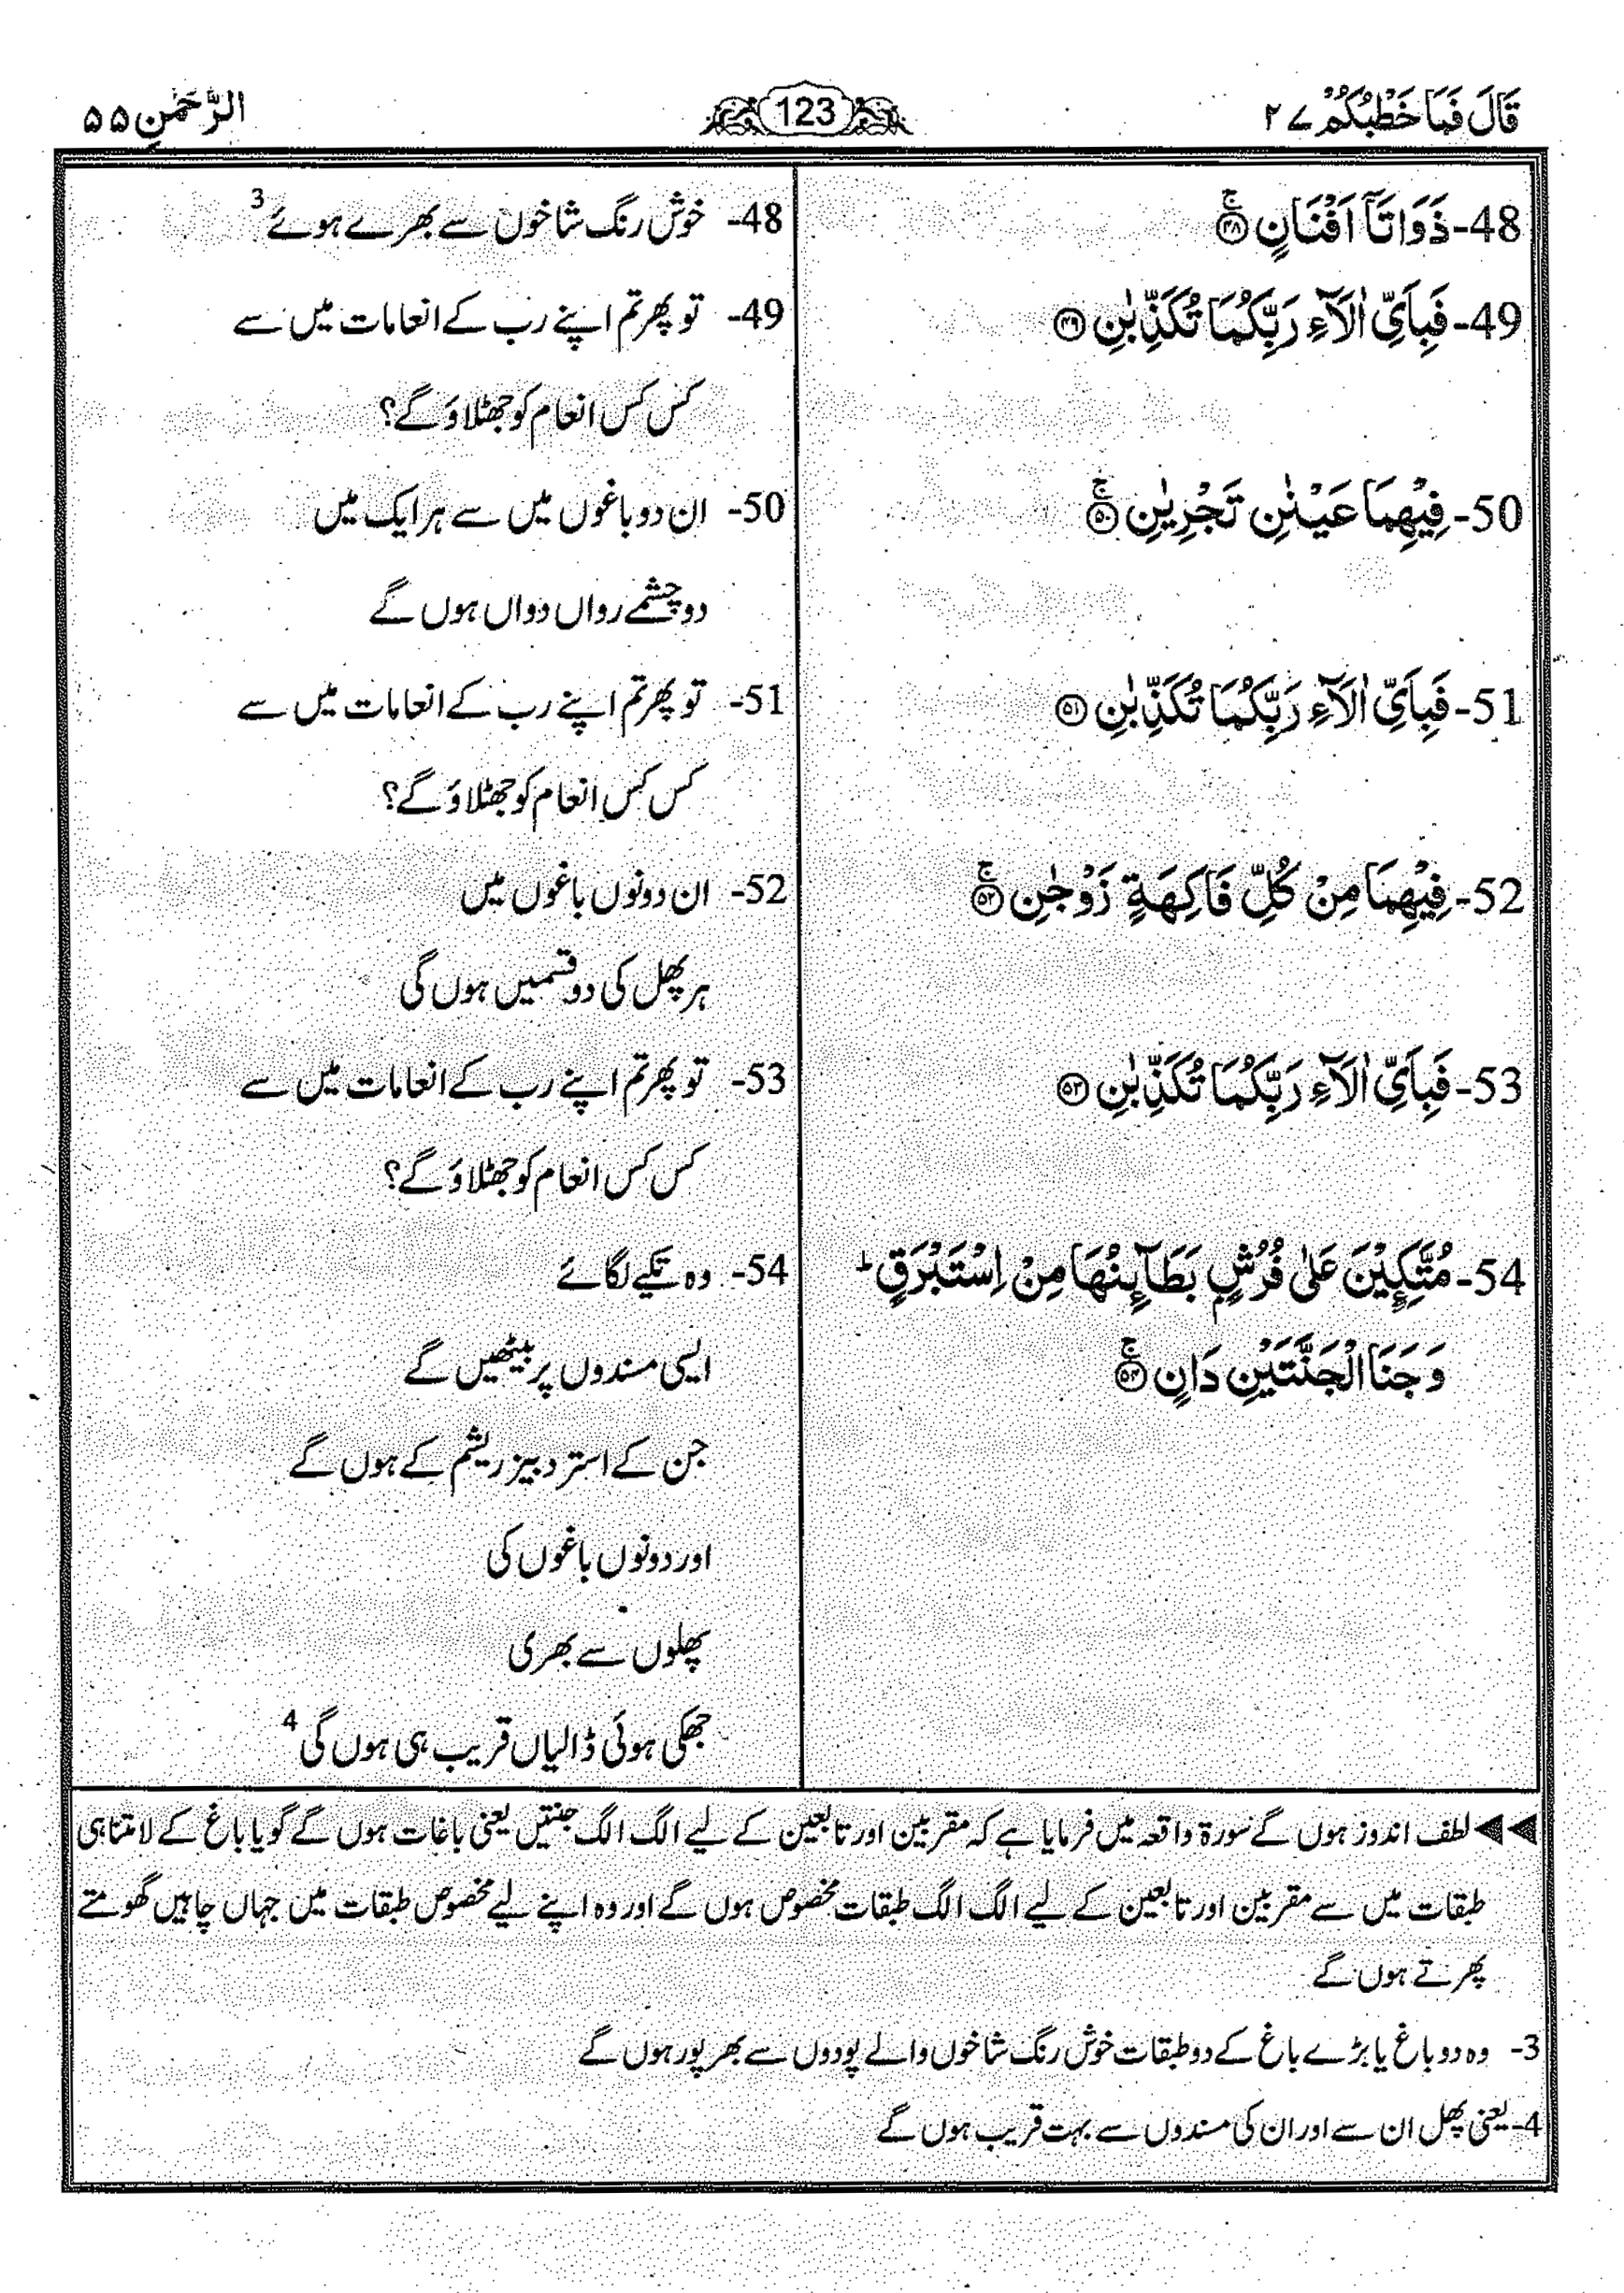 قَالَ فَمَا خَطْبُكُمْ ۲۷
123
الرَّحْمٰنِ ۵۵
48- ذَوَاتَآ اَفْنَانٍ ۚ﴿۴۸﴾
49- فَبِاَيِّ اٰلَآءِ رَبِّكُمَا تُكَذِّبٰنِ ﴿۴۹﴾
50- فِيْهِمَا عَيْنٰنِ تَجْرِيٰنِ ۚ﴿۵۰﴾
51- فَبِاَيِّ اٰلَآءِ رَبِّكُمَا تُكَذِّبٰنِ ﴿۵۱﴾
52- فِيْهِمَا مِنْ كُلِّ فَاكِهَةٍ زَوْجٰنِ ۚ﴿۵۲﴾
53- فَبِاَيِّ اٰلَآءِ رَبِّكُمَا تُكَذِّبٰنِ ﴿۵۳﴾
54- مُتَّكِـِٕيْنَ عَلٰى فُرُشٍۭ بَطَآىِٕنُهَا مِنْ اِسْتَبْرَقٍ ؕ
وَجَنَا الْجَنَّتَيْنِ دَانٍ ۚ﴿۵۴﴾
48- خوش رنگ شاخوں سے بھرے ہوئے 3
49- تو پھر تم اپنے رب کے انعامات میں سے
کس کس انعام کو جھٹلاؤ گے؟
50- ان دو باغوں میں سے ہر ایک میں
دو چشمے رواں دواں ہوں گے
51- تو پھر تم اپنے رب کے انعامات میں سے
کس کس انعام کو جھٹلاؤ گے؟
52- ان دونوں باغوں میں
ہر پھل کی دو قسمیں ہوں گی
53- تو پھر تم اپنے رب کے انعامات میں سے
کس کس انعام کو جھٹلاؤ گے؟
54- وہ تکیے لگائے
ایسی مسندوں پر بیٹھیں گے
جن کے استر دبیز ریشم کے ہوں گے
اور دونوں باغوں کی
پھلوں سے بھری
جھکی ہوئی ڈالیاں قریب ہی ہوں گی 4
◄◄ لطف اندوز ہوں گے سورۃ واقعہ میں فرمایا ہے کہ مقربین اور تابعین کے لیے الگ الگ جنتیں یعنی باغات ہوں گے گویا باغ کے لامتناہی
طبقات میں سے مقربین اور تابعین کے لیے الگ الگ طبقات مخصوص ہوں گے اور وہ اپنے لیے مخصوص طبقات میں جہاں چاہیں گھومتے
پھرتے ہوں گے
3- وہ دو باغ یا بڑے باغ کے دو طبقات خوش رنگ شاخوں والے پودوں سے بھرپور ہوں گے
4- یعنی پھل ان سے اور ان کی مسندوں سے بہت قریب ہوں گے